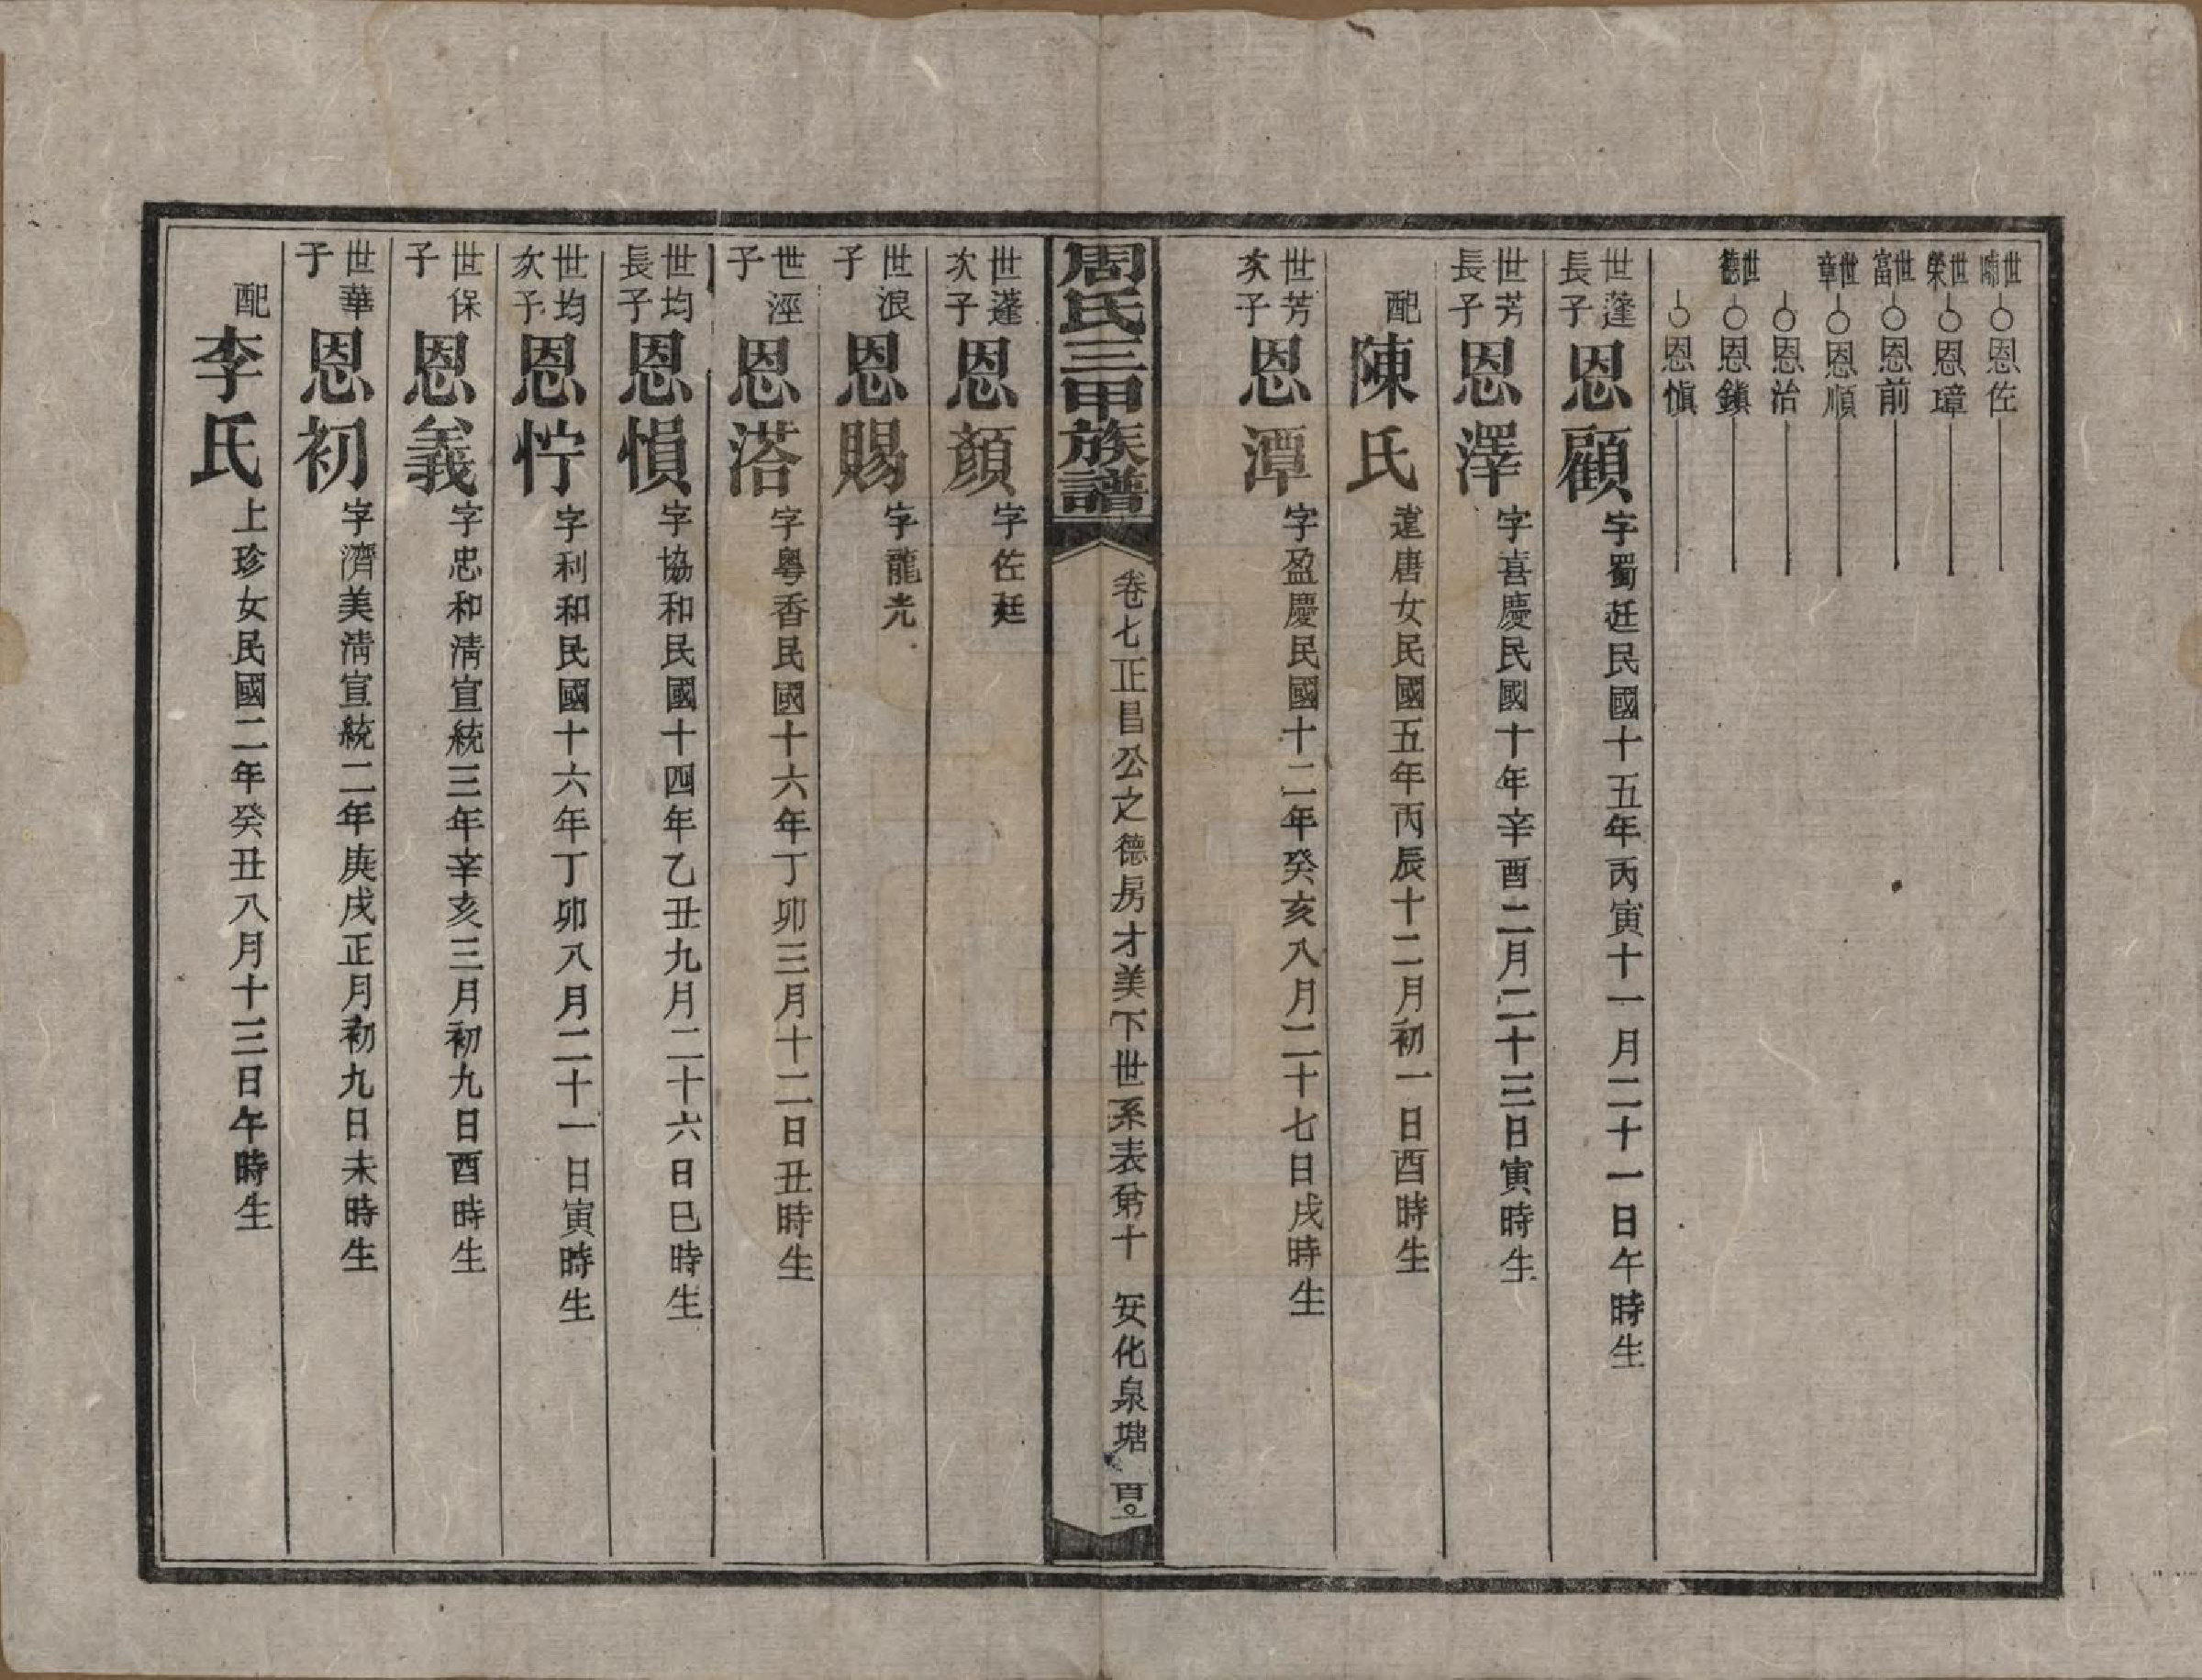 世嘯○恩佐
世榮○恩璋
世富○恩前
世章○恩順
○恩治
世德○恩鎮
○恩慎
世蓬長子恩顧字蜀廷民國十五年丙寅十一月二十一日午時生
世芳長子恩澤字喜慶民國十年辛酉二月二十三日寅時生
配陳氏達唐女民國五年丙辰十二月初一日酉時生
世芳次子恩潭字盈慶民國十二年癸亥八月二十七日戌時生
周氏三甲族譜
卷七正昌公之德房才美下世系表第十 安化泉塘
世蓬次子恩顏字佐廷
世浪子恩賜字龍光
世涇子恩溚字粵香民國十六年丁卯三月十二日丑時生
世均長子恩愪字協和民國十四年乙丑九月二十六日巳時生
世均次子恩佇字利和民國十六年丁卯八月二十一日寅時生
世保子恩義字忠和清宣統三年辛亥三月初九日酉時生
世華子恩初字濟美清宣統二年庚戌正月初九日未時生
配李氏上珍女民國二年癸丑八月十三日午時生